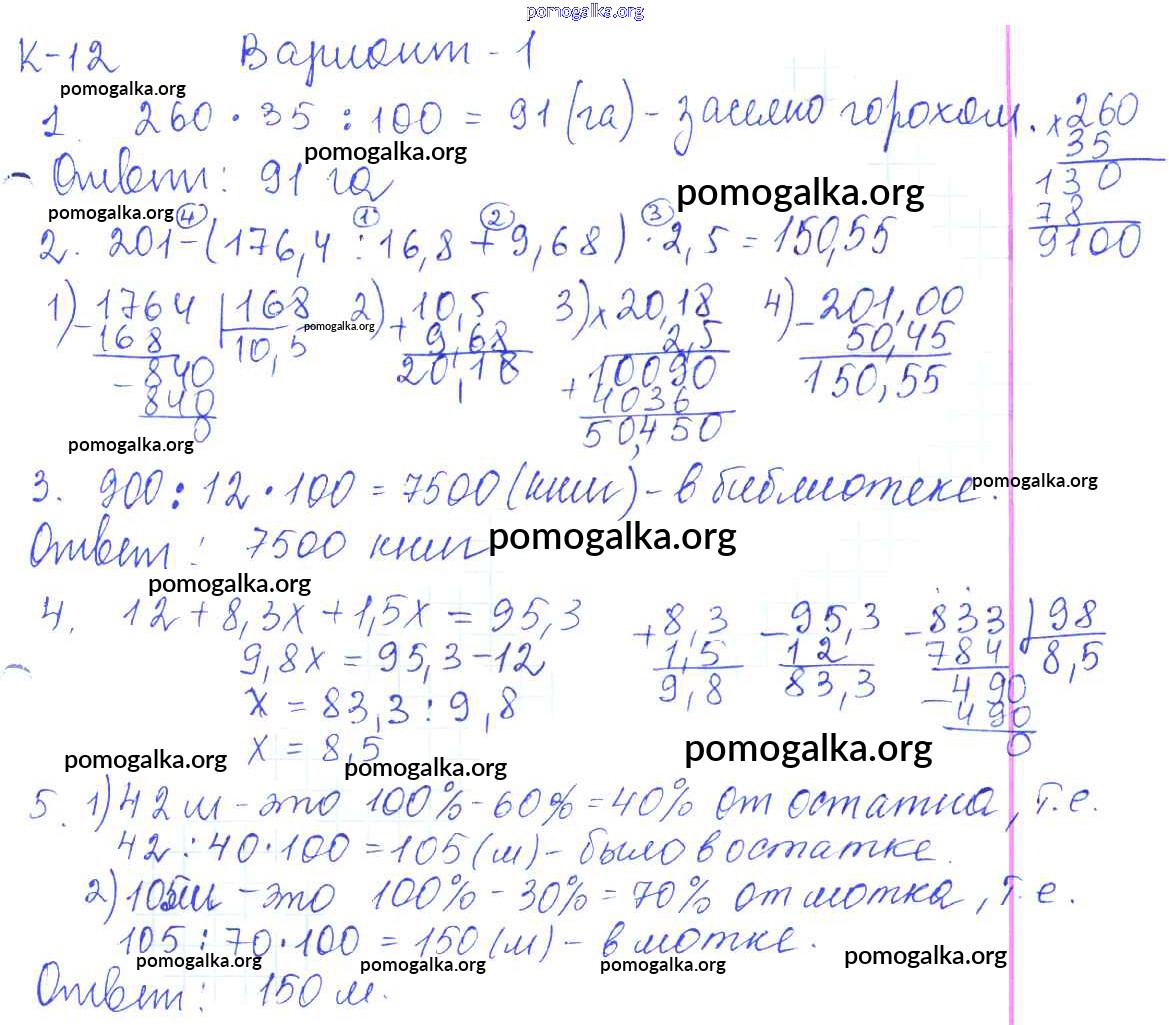 pomogalka.org
К-12 Вариант - 1
pomogalka.org
1. 260 · 35 : 100 = 91 (га) - засеяно горохом. × 260
35
130
78
9100
pomogalka.org
Ответ: 91 га
pomogalka.org
pomogalka.org
④ ① ② ③
2. 201 - (176,4 : 16,8 + 9,68) · 2,5 = 150,55
1) - 1764 | 168
168 10,5
- 840
840
0
pomogalka.org
2) + 10,5
9,68
20,18
3) × 20,18
2,5
+ 10090
4036
50,450
4) - 201,00
50,45
150,55
pomogalka.org
3. 900 : 12 · 100 = 7500 (книг) - в библиотеке.
pomogalka.org
Ответ: 7500 книг
pomogalka.org
pomogalka.org
4. 12 + 8,3x + 1,5x = 95,3
9,8x = 95,3 - 12
x = 83,3 : 9,8
x = 8,5
+ 8,3
1,5
9,8
- 95,3
12
83,3
- 833 | 98
784 8,5
- 490
490
0
pomogalka.org
pomogalka.org
pomogalka.org
5. 1) 42 м - это 100% - 60% = 40% от остатка, т.е.
42 : 40 · 100 = 105 (м) - было в остатке.
2) 105м - это 100% - 30% = 70% от мотка, т.е.
105 : 70 · 100 = 150 (м) - в мотке.
pomogalka.org pomogalka.org pomogalka.org pomogalka.org
Ответ: 150 м.